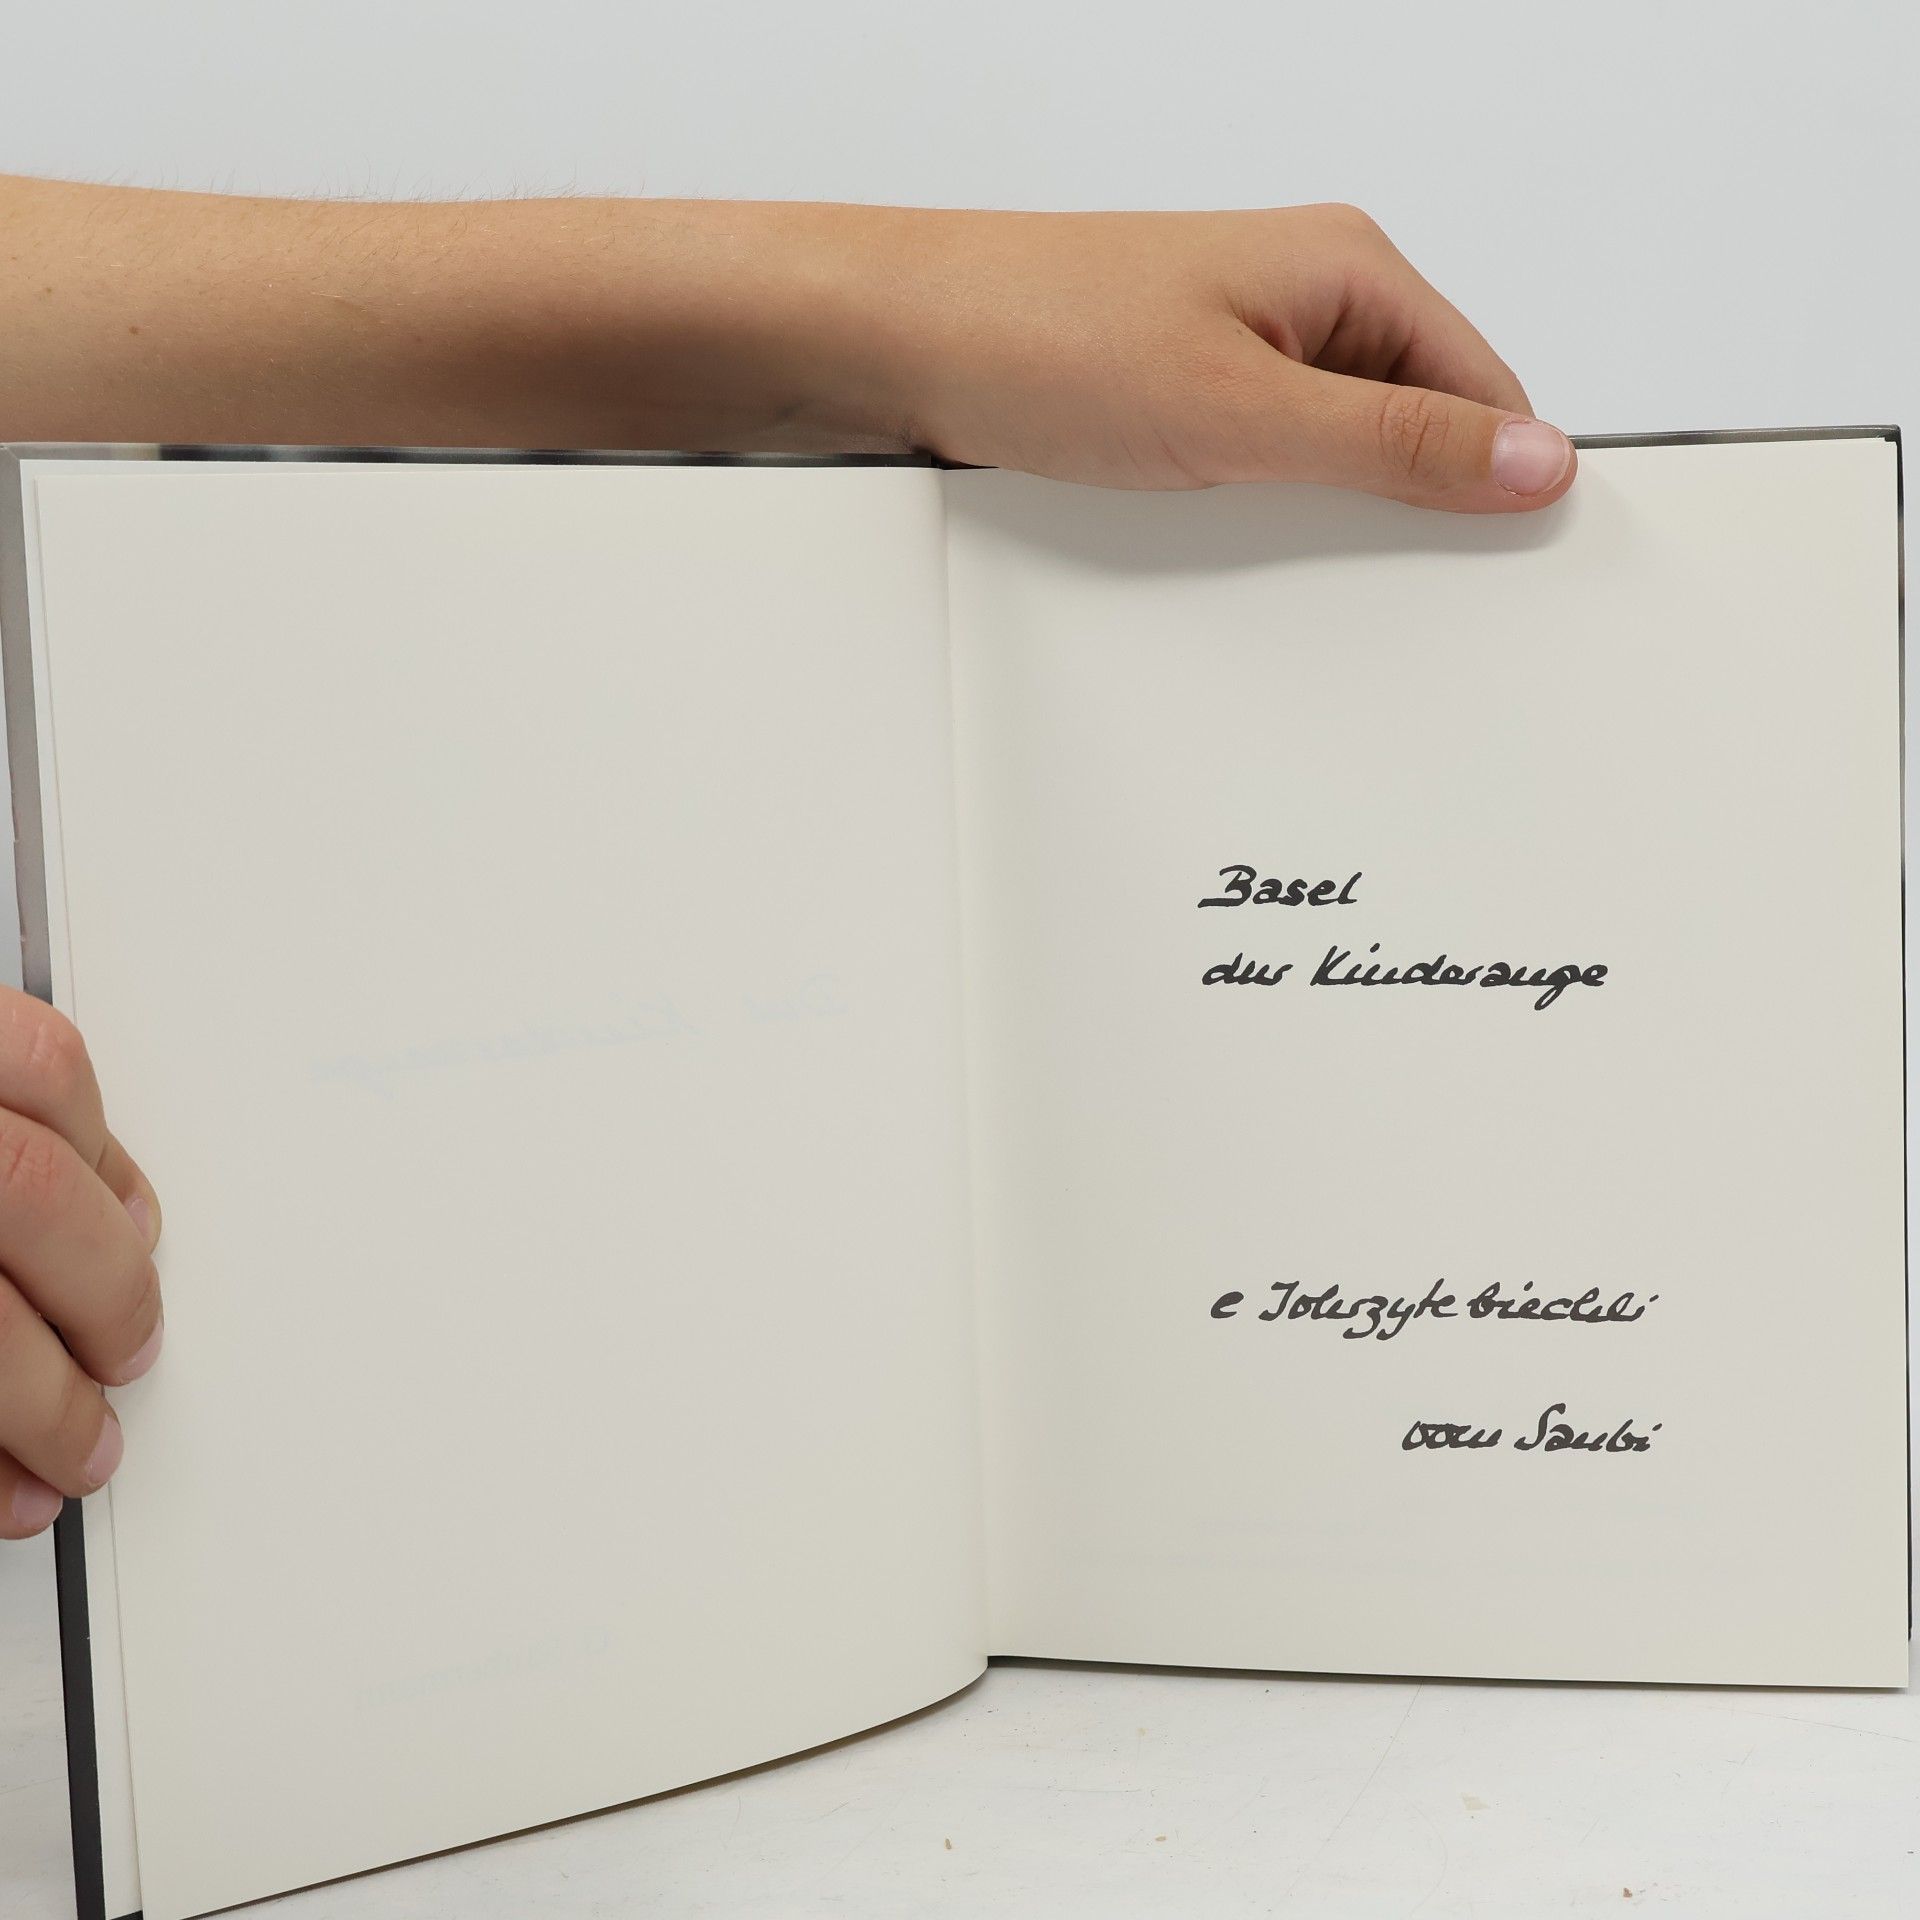 Basel
dur Kinderauge
e Johrzytebiechli
vom Saubi